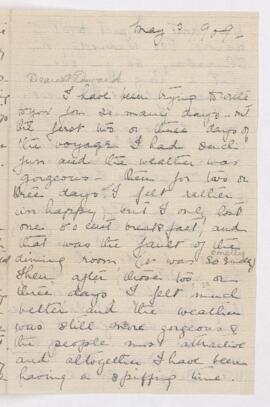 May 3 '09.
Dearest Edward
I have been trying to write
to you for so many days - but
the first two or three days of
the voyage I had such
fun and the weather was
gorgeous - then for two or
three days I felt rather
unhappy, but I only lost
one breakfast, and
that was the fault of the
dining room, (it was so smelly)
Then after those two or
three days I felt much
better and the weather
was still more gorgeous &
the people most attractive
and altogether I have been
having a spiffing time.